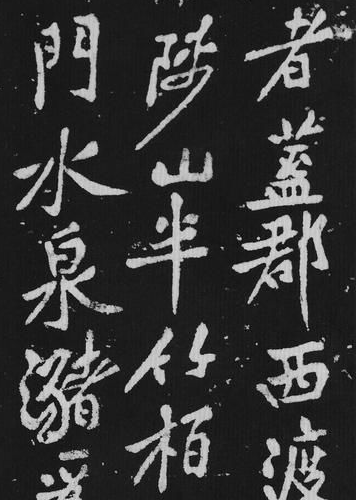 者蓋郡西渡
陟山半竹柏
門水泉瀦